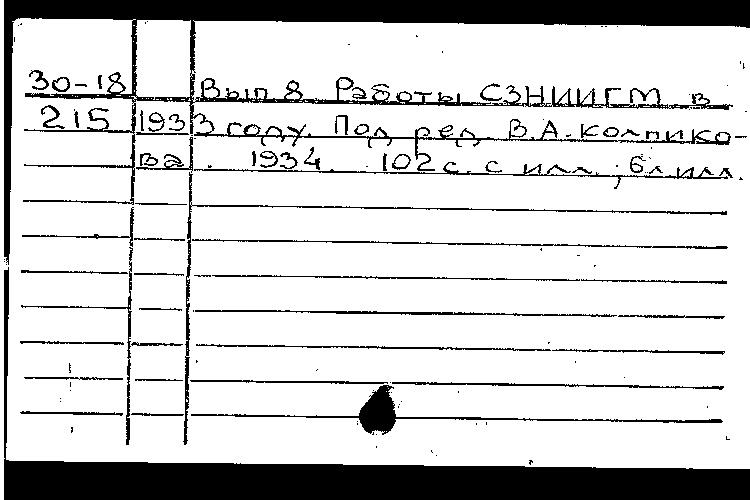 30-18 Вып 8 Работы СЗНИИГМ в
215 1933 году. Под ред. В.А.Колпико-
ва. 1934. 102 с. с илл.; 6 л илл.